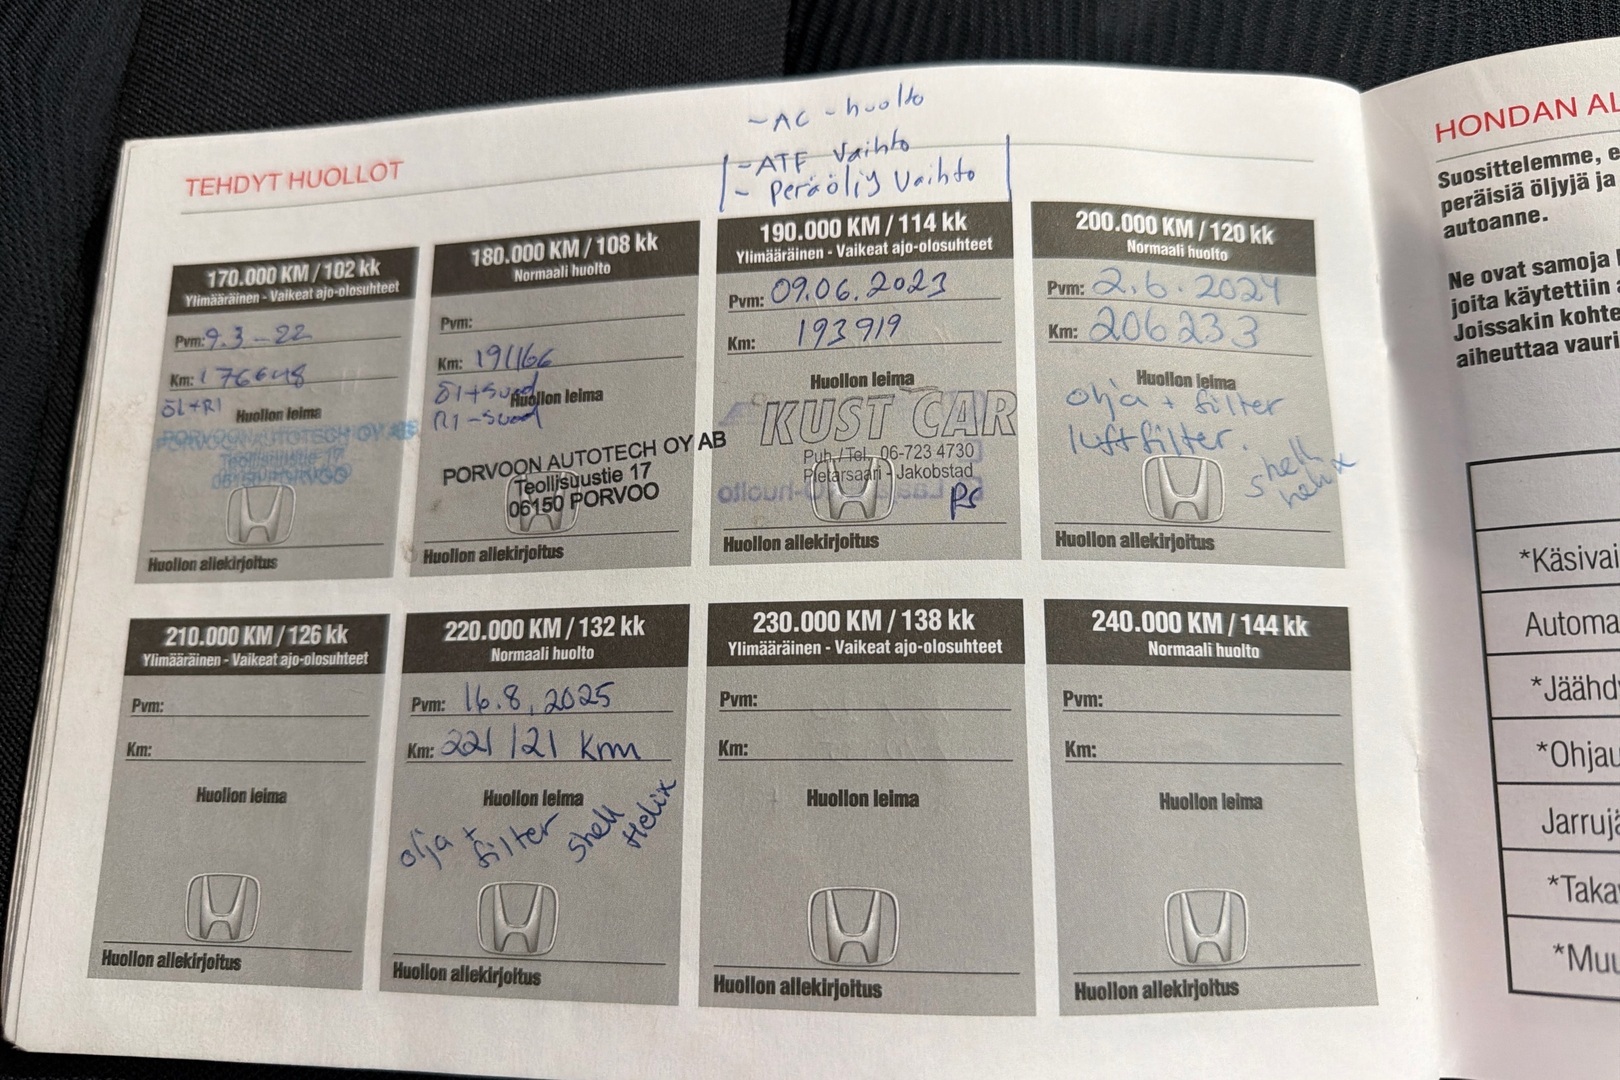 - AC - huolto
- ATF vaihto
- Peräöljy vaihto
TEHDYT HUOLLOT
170.000 KM / 102 kk
Ylimääräinen - Vaikeat ajo-olosuhteet
Pvm: 9.3-22
Km: 176648
ÖL+RI
Huollon leima
PORVOON AUTOTECH OY AB
Teollisuustie 17
06150 PORVOO
Huollon allekirjoitus
180.000 KM / 108 kk
Normaali huolto
Pvm:
Km: 191166
Öl+suod
Huollon leima
RI-suod
PORVOON AUTOTECH OY AB
Teollisuustie 17
06150 PORVOO
Huollon allekirjoitus
190.000 KM / 114 kk
Ylimääräinen - Vaikeat ajo-olosuhteet
Pvm: 09.06.2023
Km: 193919
Huollon leima
KUST CAR
Puh./Tel. 06-723 4730
Pietarsaari - Jakobstad
Huollon allekirjoitus
200.000 KM / 120 kk
Normaali huolto
Pvm: 2.6.2024
Km: 206233
Huollon leima
olja + filter
luftfilter.
shell
helix
Huollon allekirjoitus
210.000 KM / 126 kk
Ylimääräinen - Vaikeat ajo-olosuhteet
Pvm:
Km:
Huollon leima
Huollon allekirjoitus
220.000 KM / 132 kk
Normaali huolto
Pvm: 16.8.2025
Km: 221121 km
Huollon leima
olja + filter
shell Helix
Huollon allekirjoitus
230.000 KM / 138 kk
Ylimääräinen - Vaikeat ajo-olosuhteet
Pvm:
Km:
Huollon leima
Huollon allekirjoitus
240.000 KM / 144 kk
Normaali huolto
Pvm:
Km:
Huollon leima
Huollon allekirjoitus
HONDAN AL
Suosittelemme, e
peräisiä öljyjä ja
autoanne.
Ne ovat samoja
joita käytettiin
Joissakin kohte
aiheuttaa vauri
*Käsivai
Automa
*Jäähdy
*Ohjau
Jarrujä
*Taka
*Muu